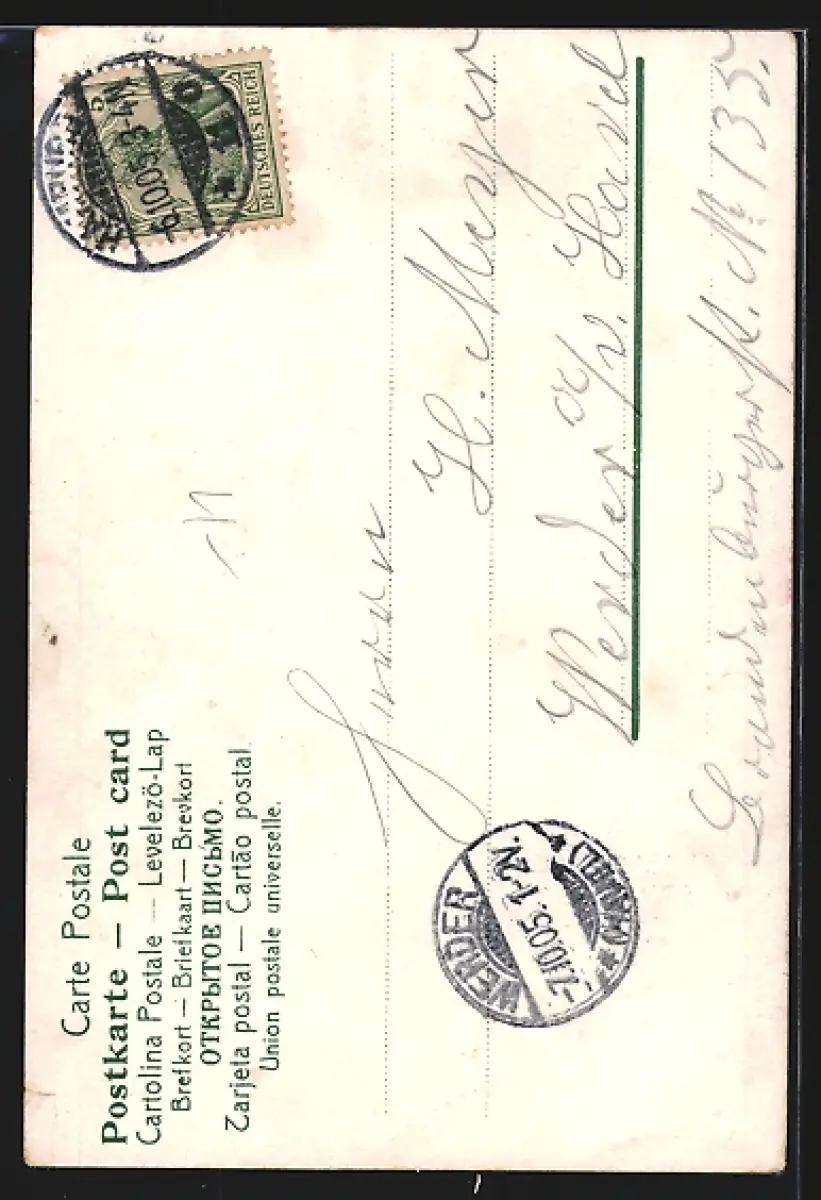 Carte Postale
Postkarte — Post card
Cartolina Postale — Levelező-Lap
Brefkort — Briefkaart — Brevkort
ОТКРЫТОЕ ПИСЬМО.
Zarjeta postal — Cartão postal
Union postale universelle.
5
DEUTSCHES REICH
6.10.05. 3-4N
Herrn
H. Meyer
Werder a/v. Havel
Brandenburgerst. No 135.
WERDER
7.10.05. 1-2N.
*(HAVEL)*